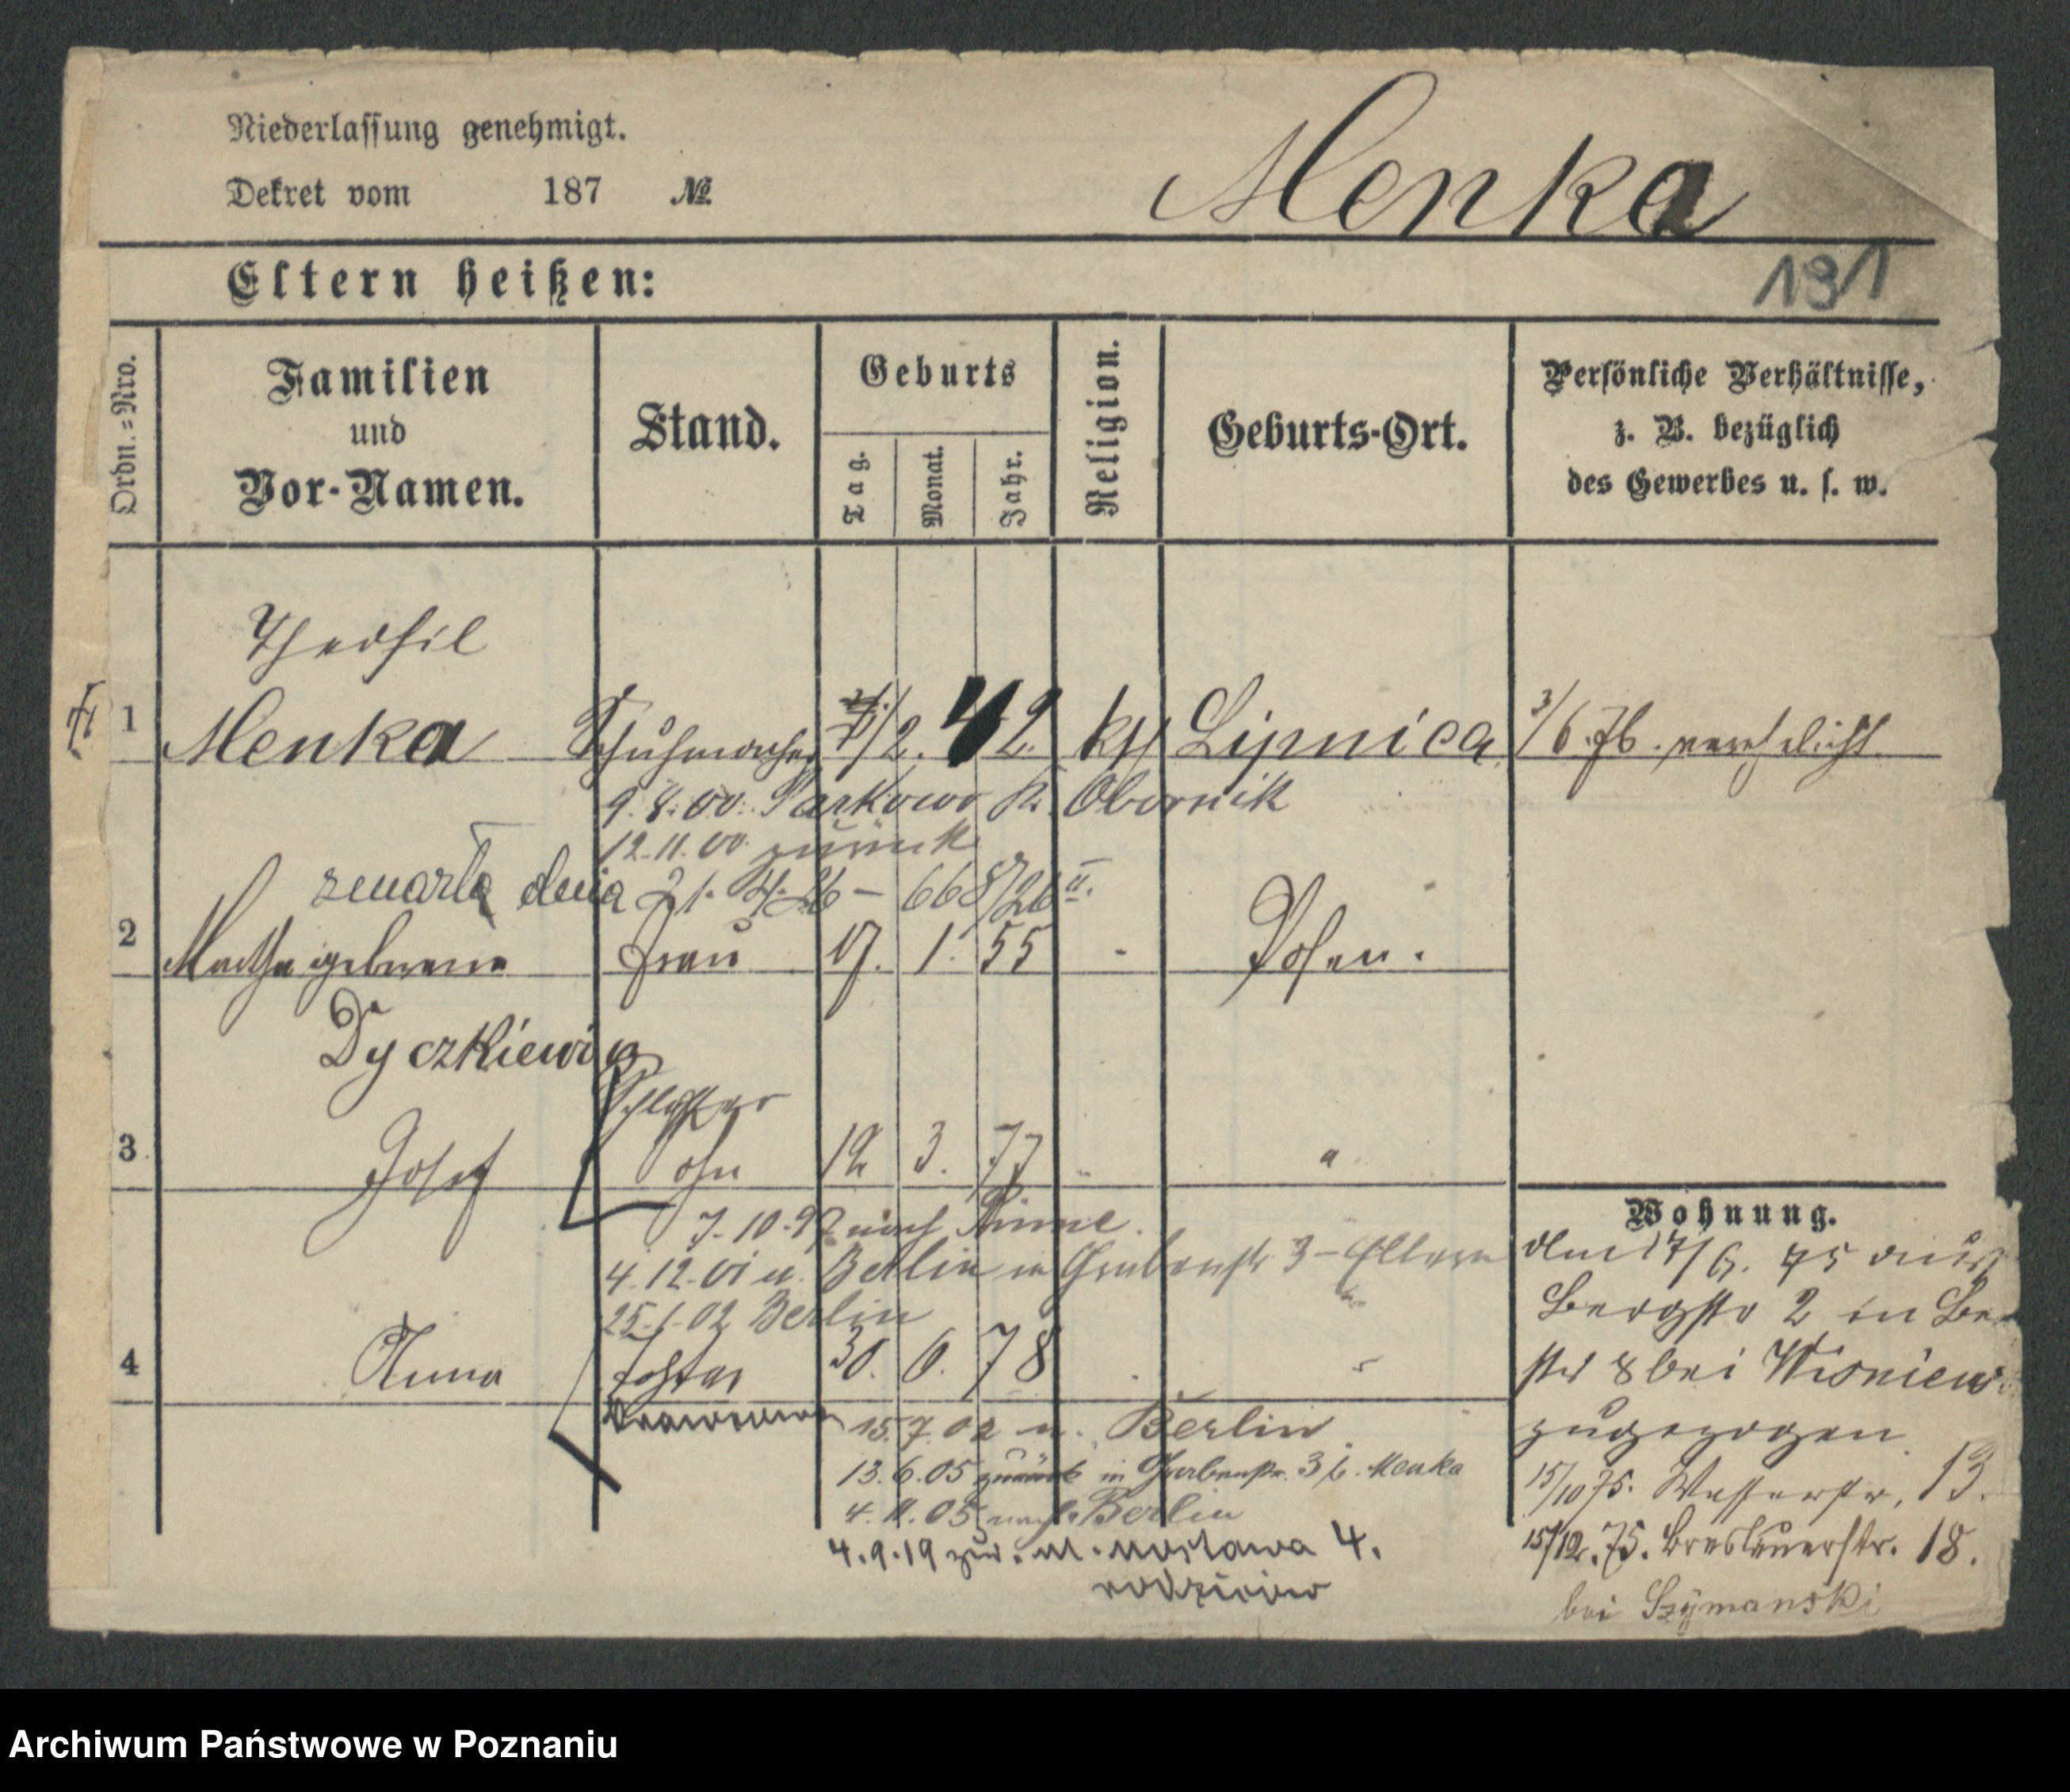 Niederlassung genehmigt.
Dekret vom 187 №
Menka
Eltern heißen:
191
Ordn.=Nro.
Familien
und
Vor-Namen.
Stand.
Geburts
Tag.
Monat.
Jahr.
Religion.
Geburts-Ort.
Persönliche Verhältnisse,
z. B. bezüglich
des Gewerbes u. s. w.
Theofil
1 Menka Schuhmacher 2. 42. kth Lipnica 3/6.76. verehelicht
9.8.00. Parkowo Kr. Obornik
12.11.00. zurück
zmarła dnia 21.4.26 – 668/26 II.
2 Martha geborene Frau 17. 1. 55 Posen.
Dyczkiewicz
Schlosser
3 Josef Sohn 12 3. 77
7.10.97 nach Pinne.
4.12.01 u. Berlin in Grabenstr 3 – Eltern
25.1.02 Berlin
4 Anna Tochter 30. 6. 78
15.7.02 n. Berlin
13.6.05 zurück in Grabenstr. 3 b. Menka
4.11.05 nach Berlin
4.9.19 zur. M. Mostawa 4.
rodziców
Wohnung.
Am 17/6. 75 aus
Bergstr 2 in Be
str 8 bei Wisniew
zugezogen.
15/10 75. Wasserstr. 13.
15/12. 75. Breslauerstr. 18.
bei Szymanski
Archiwum Państwowe w Poznaniu